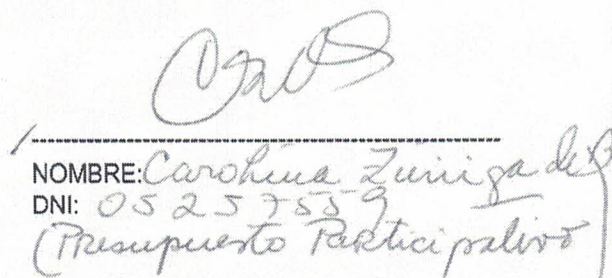 NOMBRE: Carolina Zuniga de B
DNI: 05257559
(Presupuesto Participativo)